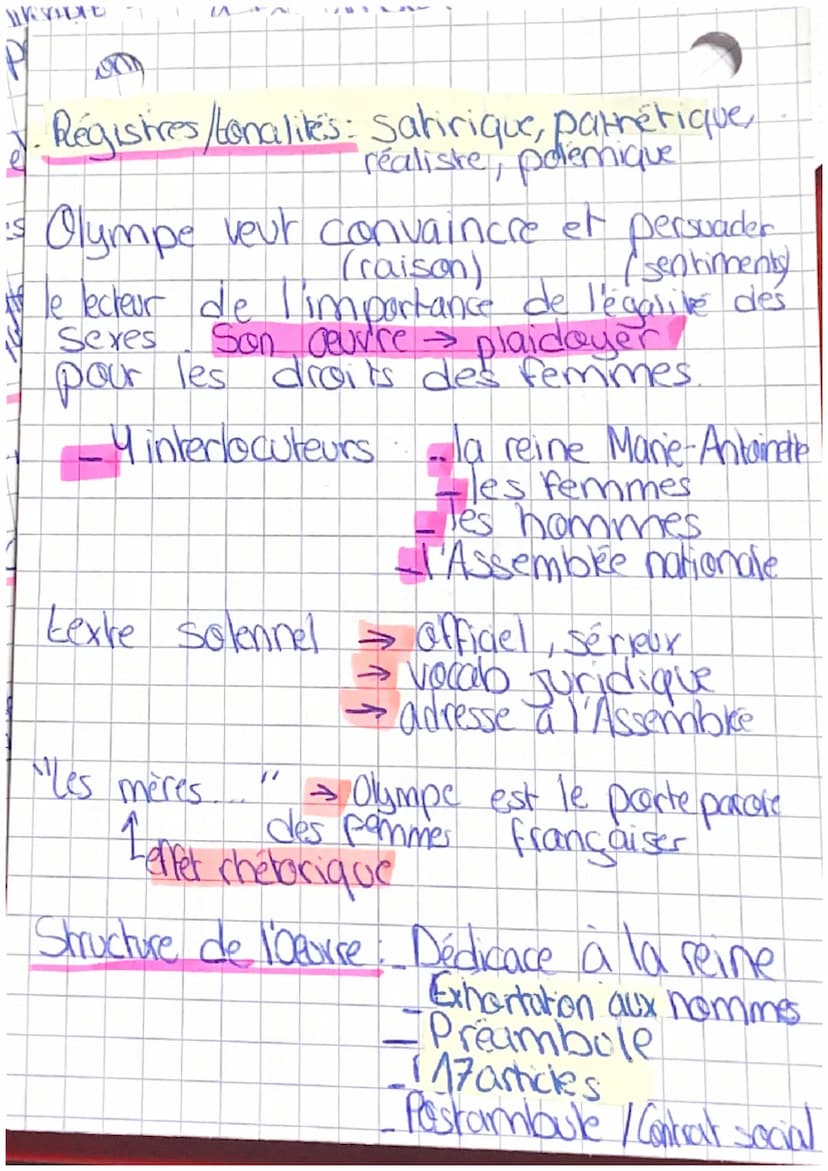 Régistres/tonalités: satirique, pathétique,
réaliste, polémique
Olympe veut convaincre et persuader
(raison) (sentiments)
le lecteur de l'importance de l'égalité des
sexes. Son œuvre → plaidoyer
pour les droits des femmes.
- 4 interlocuteurs : - la reine Marie-Antoinette
- les femmes
- les hommes
- l'Assemblée nationale
texte solennel → officiel, sérieux
→ vocab juridique
→ adresse à l'Assemblée
"Les mères..." → Olympe est le porte parole
des femmes françaises
↑ effet rhétorique
Structure de l'Oeuvre : - Dédicace à la reine
- Exhortation aux hommes
- Préambule
- 17 articles
- Postambule / Contrat social